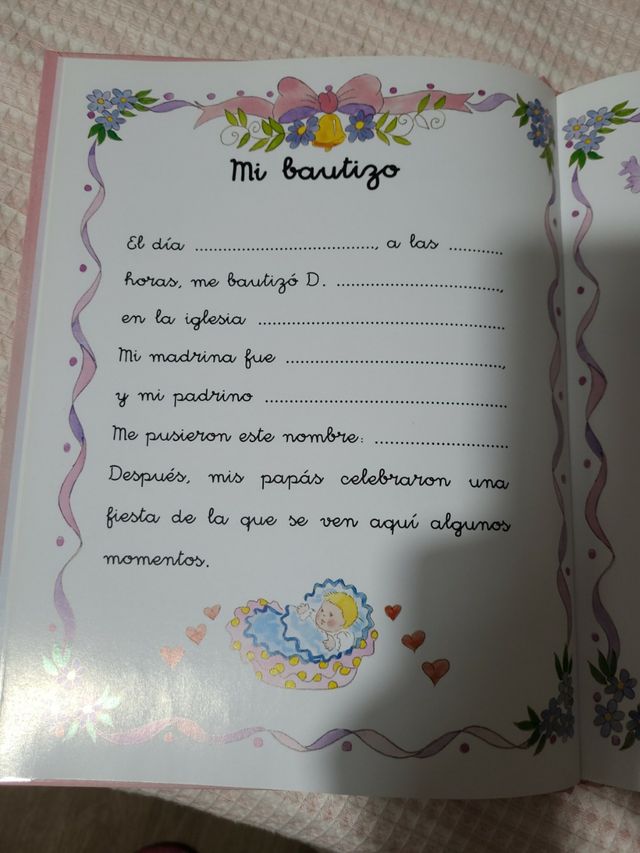 Mi bautizo
El día ......................................, a las ...........
horas, me bautizó D. ...................................,
en la iglesia .....................................................
Mi madrina fue ...............................................,
y mi padrino ....................................................
Me pusieron este nombre: .............................
Después, mis papás celebraron una
fiesta de la que se ven aquí algunos
momentos.